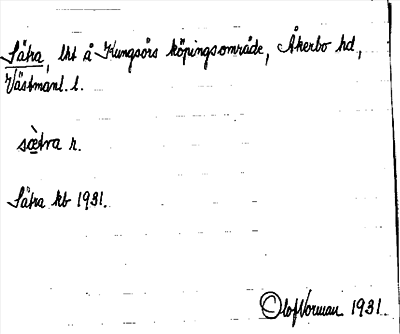 Sätra, lht å Kungsörs köpingsområde, Åkerbo hd,
Västmanl. l.
sæ̀tra n.
Sätra kb 1931.
Olof Norman 1931.